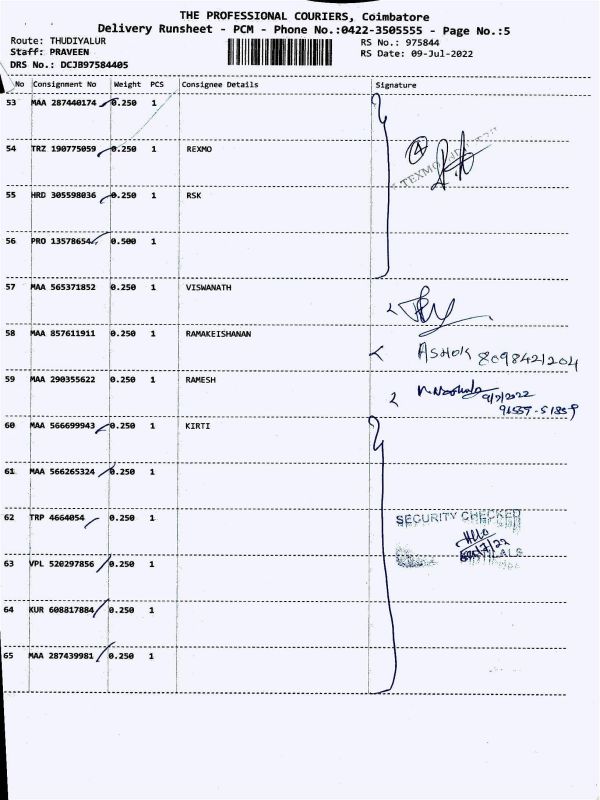 THE PROFESSIONAL COURIERS, Coimbatore
Delivery Runsheet - PCM - Phone No.:0422-3505555 - Page No.:5
Route: THUDIYALUR
RS No.: 975844
Staff: PRAVEEN
RS Date: 09-Jul-2022
DRS No.: DCJB97584405
No Consignment No Weight PCS Consignee Details Signature
53 MAA 287440174 0.250 1
54 TRZ 190775059 0.250 1 REXMO
TEXMO
55 HRD 305598036 0.250 1 RSK
56 PRO 13578654 0.500 1
57 MAA 565371852 0.250 1 VISWANATH
58 MAA 857611911 0.250 1 RAMAKEISHANAN
ASHOK 8098421204
59 MAA 290355622 0.250 1 RAMESH
9/7/2022
60 MAA 566699943 0.250 1 KIRTI
61 MAA 566265324 0.250 1
62 TRP 4664054 0.250 1
SECURITY CHECKED
63 VPL 520297856 0.250 1
64 KUR 608817884 0.250 1
65 MAA 287439981 0.250 1